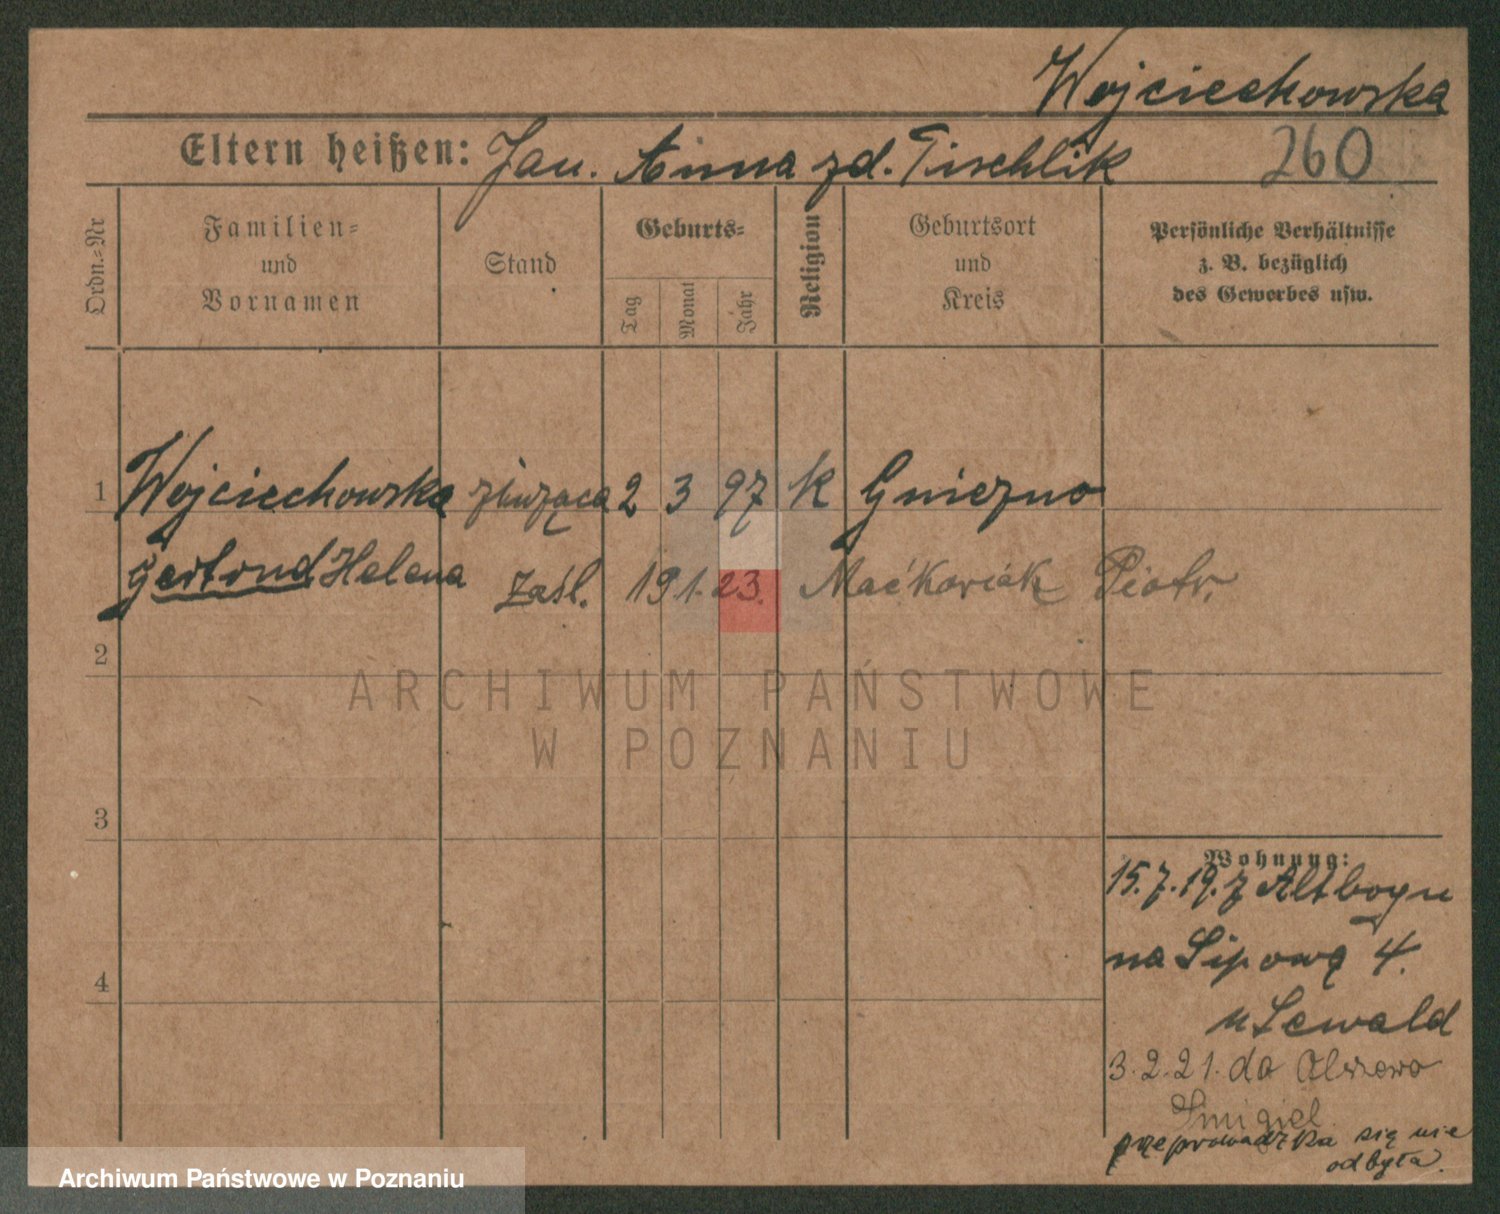 Wojciechowska
Eltern heißen: Jan. Anna zd. Tischlik 260
Ordn.-Nr
Familien-
und
Vornamen
Stand
Geburts-
Tag
Monat
Jahr
Religion
Geburtsort
und
Kreis
Persönliche Verhältnisse
z. B. bezüglich
des Gewerbes usw.
1 Wojciechowska służąca 2 3 97 K Gniezno
Gertrud Helena zaśl. 19 1. 23. Maćkowiak Piotr.
2
ARCHIWUM PAŃSTWOWE
W POZNANIU
3
Wohnung:
15.7.19. z Altboyn
na Lipową 4.
u Lewald
4
3.2.21. do Olszewo
Śmigiel
przeprowadzka się nie
odbyła.
Archiwum Państwowe w Poznaniu